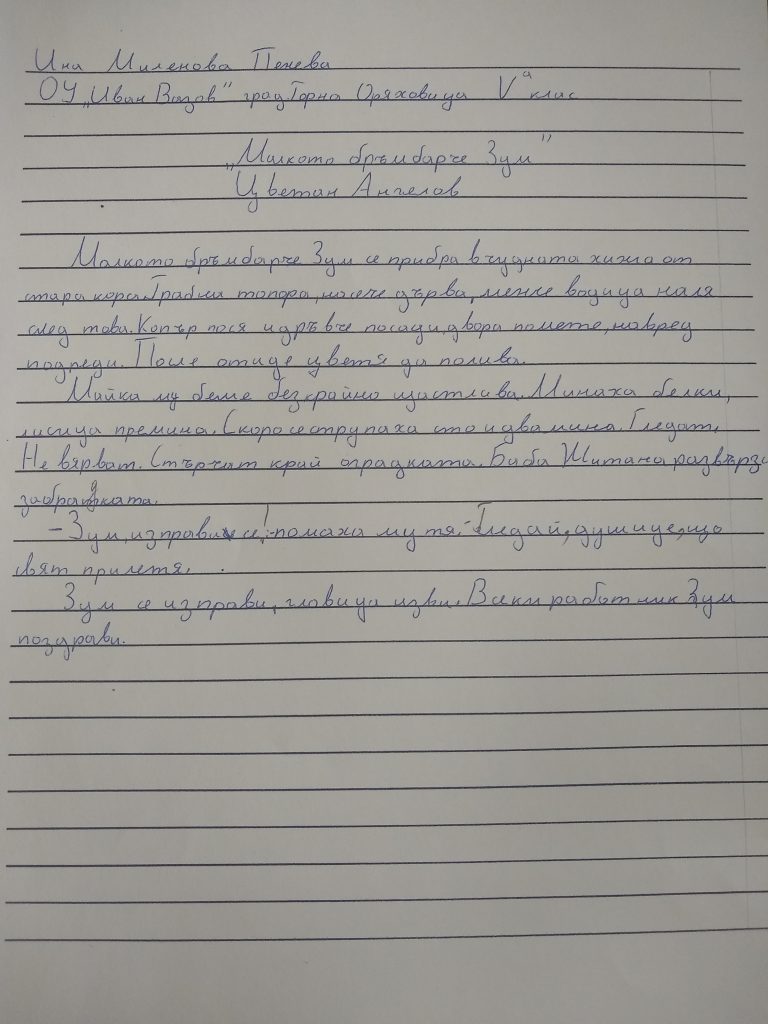 Ина Миленова Пенева
ОУ „Иван Вазов" град Горна Оряховица Vа клас
„Малкото бръмбарче Зум"
Цветан Ангелов
Малкото бръмбарче Зум се прибра в чудната хижа от
стара кора. Грабна топора, насече дърва, менче водица наля
след това. Копър пося и дръвче посади, двора помете, навред
подреди. После отиде цветя да полива.
Майка му беше безкрайно щастлива. Минаха белки,
лисица премина. Скоро се струпаха сто и двамина. Гледат.
Не вярват. Стърчат край оградката. Баба Шитана развърза
забрадката.
- Зум, изправи се! - помаха му тя. - Гледай, душице, що
свят прилетя.
Зум се изправи, главица изви. Всеки работник Зум
поздрави.